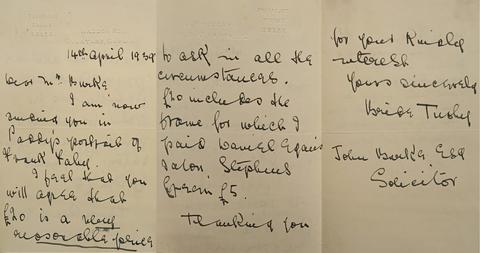 14th April 1939
Dear Mr. Burke
I am now
sending you in
Paddy's portrait of
Frank Fahy.
I feel that you
will agree that
£20 is a very
reasonable price
to ask in all the
circumstances.
£20 includes the
frame for which I
paid Daniel Egan's
Salon, Stephens
Green £5.
Thanking you
for your kindly
interest
Yours sincerely
Bride Tuohy
John Burke Esq
Solicitor